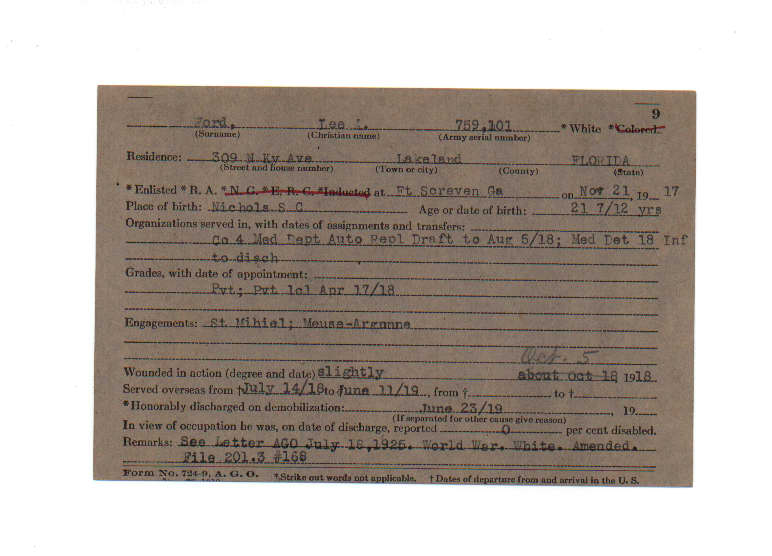 9
Ford, Lee A. 759,101 * White * Colored.
(Surname) (Christian name) (Army serial number)
Residence: 309 N Ky Ave Lakeland FLORIDA
(Street and house number) (Town or city) (County) (State)
* Enlisted * R. A. * N. G. * E. R. C. * Inducted at Ft Screven Ga on Nov 21, 19 17
Place of birth: Nichols S C Age or date of birth: 21 7/12 yrs
Organizations served in, with dates of assignments and transfers:
Co 4 Med Dept Auto Repl Draft to Aug 5/18; Med Det 18 Inf
to disch
Grades, with date of appointment:
Pvt; Pvt 1cl Apr 17/18
Engagements: St Mihiel; Meuse-Argonne
Oct. 5
Wounded in action (degree and date) slightly about Oct 18 1918
Served overseas from † July 14/18 to † June 11/19, from † to †
* Honorably discharged on demobilization: June 23/19 , 19
(If separated for other cause give reason)
In view of occupation he was, on date of discharge, reported 0 per cent disabled.
Remarks: See Letter AGO July 18,1925. World War. White. Amended.
File 201.3 #168
Form No. 724-9, A. G. O. * Strike out words not applicable. † Dates of departure from and arrival in the U. S.